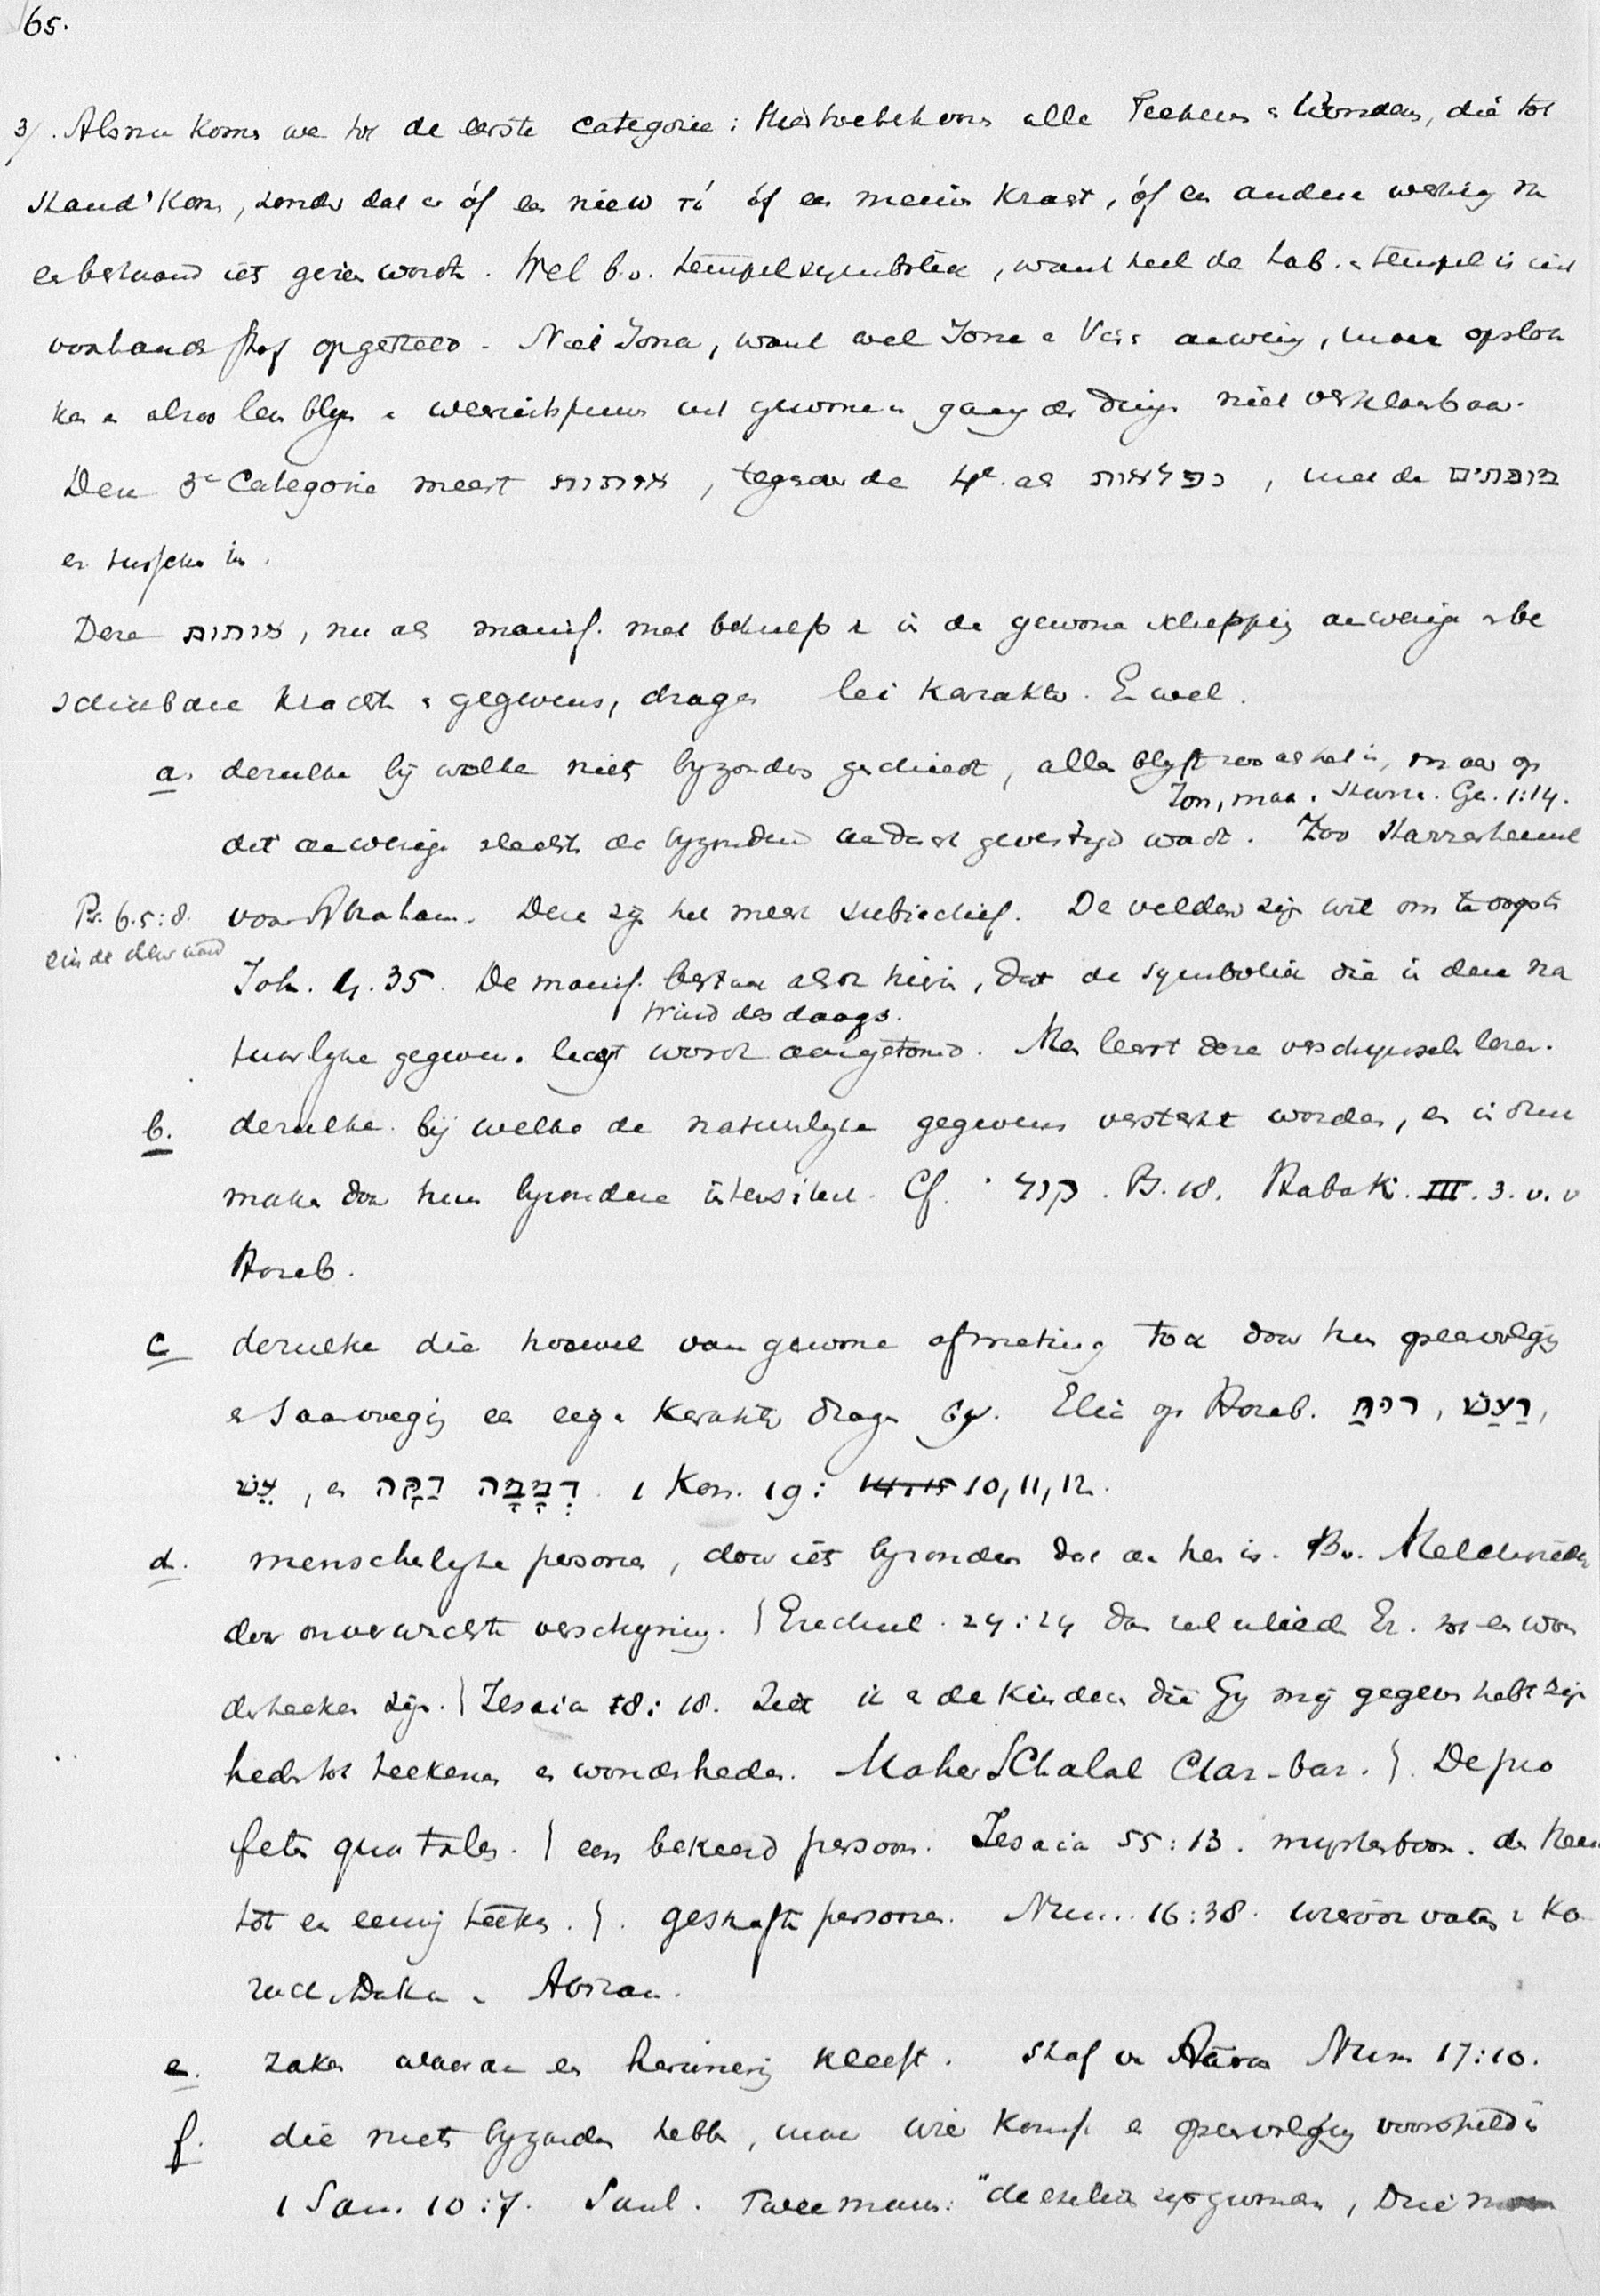 65.
3/. Alsnu koms we tot de eerste categorie: Hiertoebehoren alle Teekens & Wonders, die tot
stand kom, zonder dat er óf een nieuw τί óf een nieuwe kracht, óf een andere werking in
een bestaand iets gezien wordt. Wel b.v. tempelsymboliek, want heel de tab. & tempel is uit
voorhanden stof opgetrokken. Niet Jona, want wel Jona & Visch aanwezig, maar opslok
ken & alzoo leven blyven & weeruitspuwen uit gewonen gang der dingen niet verklaarbaar.
Deze 3e Categorie meest אותות, tegenover de 4e als נפלאות, met de מופתים
er tusschen in.
Deze אותות, nu als manif. met behulp v. in de gewone schepping aanwezige & be
schikbare krachten & gegevens, dragen lei karakter. En wel.
a. dezulke bij welke niets byzonders geschiedt, alles blyft zoo als het is, maar op
Zon, maan, Starren. Gen. 1:14.
dit aanwezige slechts de byzondere aandacht gevestigd wordt. Zoo Starrenhemel
Ps. 65:8.
einde der aard
voor Abraham. Deze zyn het meest subiectief. De velden zyn wit om te oogsten
Joh. 4.35. De manif. bestaat alzoo hierin, dat de symboliek die in deze na
Wind des daags.
tuurlyke gegevens ligt wordt aangetoond. Men leert deze verschynselen lezen.
b. dezulke bij welke de natuurlyke gegevens versterkt worden, en indruk
maken door hun byzondere intensiteit. Cf. קול. Ps. 18. Habak. III. 3. v.v
Horeb.
c dezulke die hoewel van gewone afmeting toch door hun opeenvolging
& Saamvoeging een eigen karakter dragen bv. Elia op Horeb. רוח, רַעַשׁ,
אֵשׁ, en דְּמָמָה דַקָּה. 1 Kon. 19: 14.15 10, 11, 12.
d. menschelyke personen, door iets byzonders dat aan hen is. Bv. Melchizedek
door onverwachte verschyning. } Ezechiel. 24:24 Dan zal ulieden Ez. tot een won
derteeken zyn. } Jesaia 8:18. Ziet ik & de kinderen die Gy mij gegeven hebt zyn
heden tot teekenen en wonderheden. Maher SChalal Chaz-baz. }. De pro
feten qua tales. } een bekeerd persoon. Jesaia 55:13. myrteboom. de Heere
tot een eeuwig teeken. }. gestrafte personen. Num. 16:38. wierookvaten v. Ko
rach, Dathan & Abiram.
e. zaken waaraan een herinnering kleeft. Staf van Aäron Num 17:10.
f. die niets byzonders hebben, maar wier komst en opeenvolging voorspeld is
1 Sam. 10:7. Saul. Twee mans: "de ezelinnen zyn gevonden, Drie